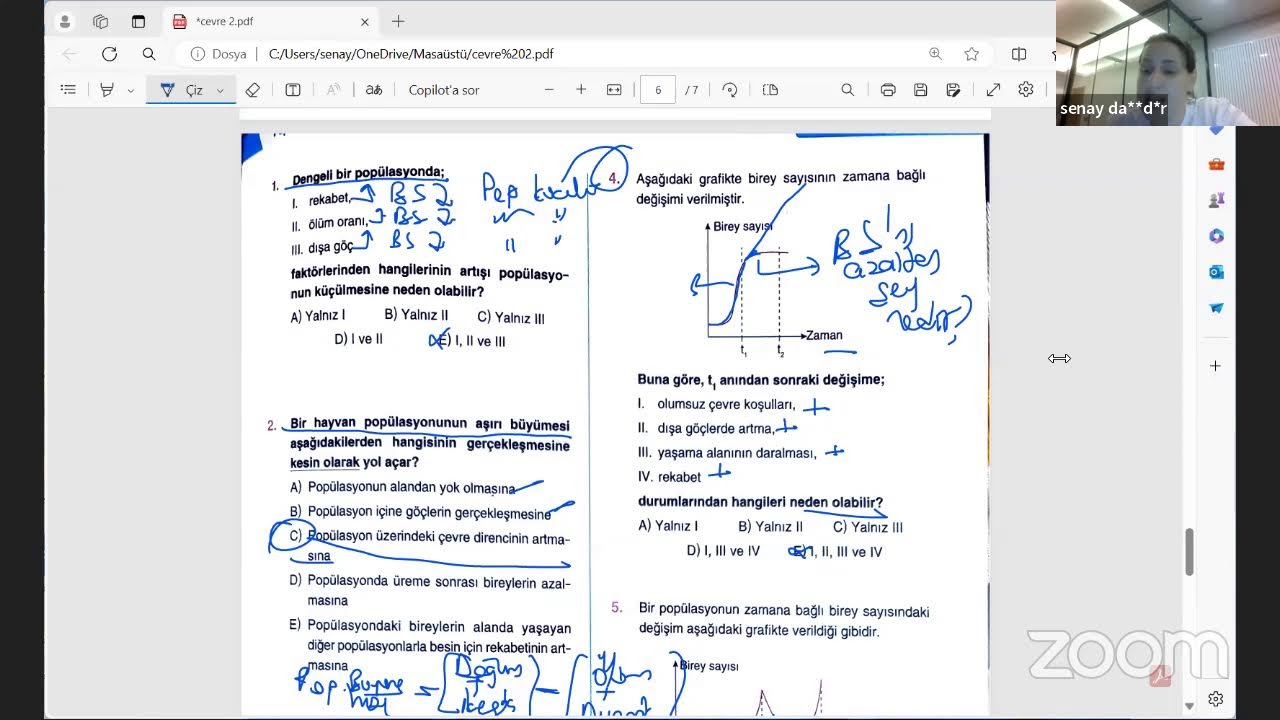 *cevre 2.pdf
Dosya
C:/Users/senay/OneDrive/Masaüstü/cevre%202.pdf
Çiz
Copilot'a sor
6 / 7
senay da**d*r
1. Dengeli bir popülasyonda;
I. rekabet, BS
II. ölüm oranı, BS
III. dışa göç BS
faktörlerinden hangilerinin artışı popülasyo-
nun küçülmesine neden olabilir?
A) Yalnız I B) Yalnız II C) Yalnız III
D) I ve II E) I, II ve III
2. Bir hayvan popülasyonunun aşırı büyümesi
aşağıdakilerden hangisinin gerçekleşmesine
kesin olarak yol açar?
A) Popülasyonun alandan yok olmasına
B) Popülasyon içine göçlerin gerçekleşmesine
C) Popülasyon üzerindeki çevre direncinin artma-
sına
D) Popülasyonda üreme sonrası bireylerin azal-
masına
E) Popülasyondaki bireylerin alanda yaşayan
diğer popülasyonlarla besin için rekabetinin art-
masına
4. Aşağıdaki grafikte birey sayısının zamana bağlı
değişimi verilmiştir.
Birey sayısı
BS'ı
azaltan
şey
nedir?
Zaman
t1 t2
Buna göre, t1 anından sonraki değişime;
I. olumsuz çevre koşulları, +
II. dışa göçlerde artma, +
III. yaşama alanının daralması, +
IV. rekabet +
durumlarından hangileri neden olabilir?
A) Yalnız I B) Yalnız II C) Yalnız III
D) I, III ve IV E) I, II, III ve IV
5. Bir popülasyonun zamana bağlı birey sayısındaki
değişim aşağıdaki grafikte verildiği gibidir.
Birey sayısı
zoom